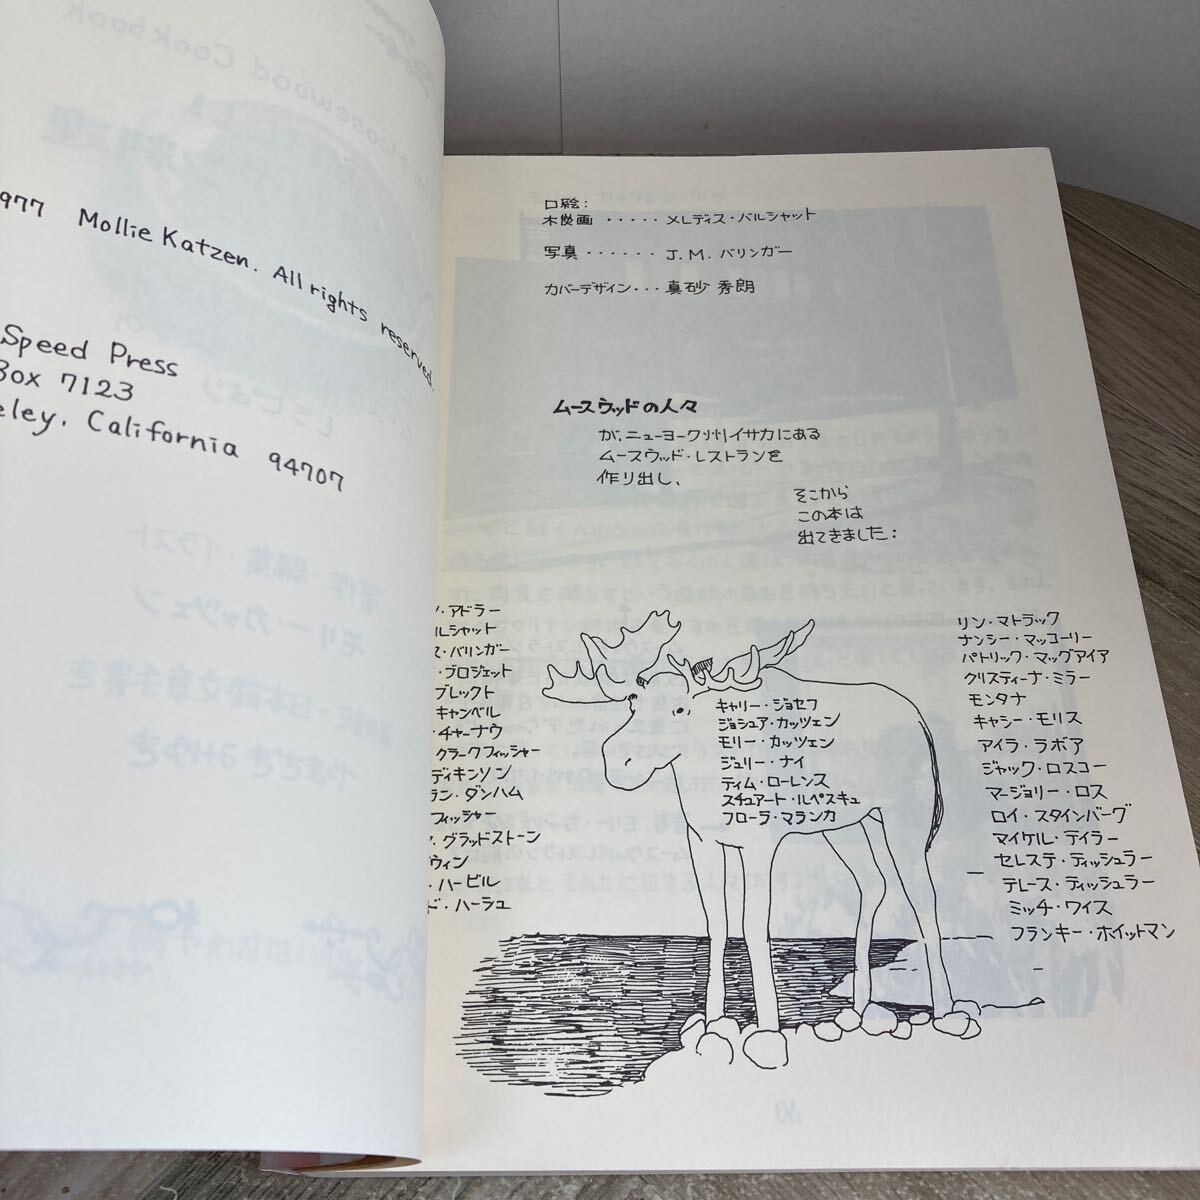 977 Mollie Katzen. All rights reserved.
Speed Press
Box 7123
eley, California 94707
口絵:
木炭画 ・・・・・ メレディス・バルシャット
写真 ・・・・・・ J.M.バリンガー
カバーデザイン・・・ 真砂 秀朗
ムースウッドの人々
が、ニューヨーク州イサカにある
ムースウッド・レストランを
作り出し、
そこから
この本は
出てきました:
・アドラー
ルシャット
ス・バリンガー
・プロジェット
ブレックト
キャンベル
・チャーナウ
クラークフィッシャー
ディキンソン
ラン・ダンハム
フィッシャー
・グラッドストーン
ウィン
・ハービル
ド・ハーシュ
キャリー・ジョセフ
ジョシュア・カッツェン
モリー・カッツェン
ジュリー・ナイ
ティム・ローレンス
スチュアート・ルペスキュ
フローラ・マランカ
リン・マトラック
ナンシー・マッコーリー
パトリック・マッグアイア
クリスティーナ・ミラー
モンタナ
キャシー・モリス
アイラ・ラボア
ジャック・ロスコー
マージョリー・ロス
ロイ・スタインバーグ
マイケル・テイラー
セレステ・ティッシュラー
テレース・ティッシュラー
ミッチ・ワイス
フランキー・ホイットマン